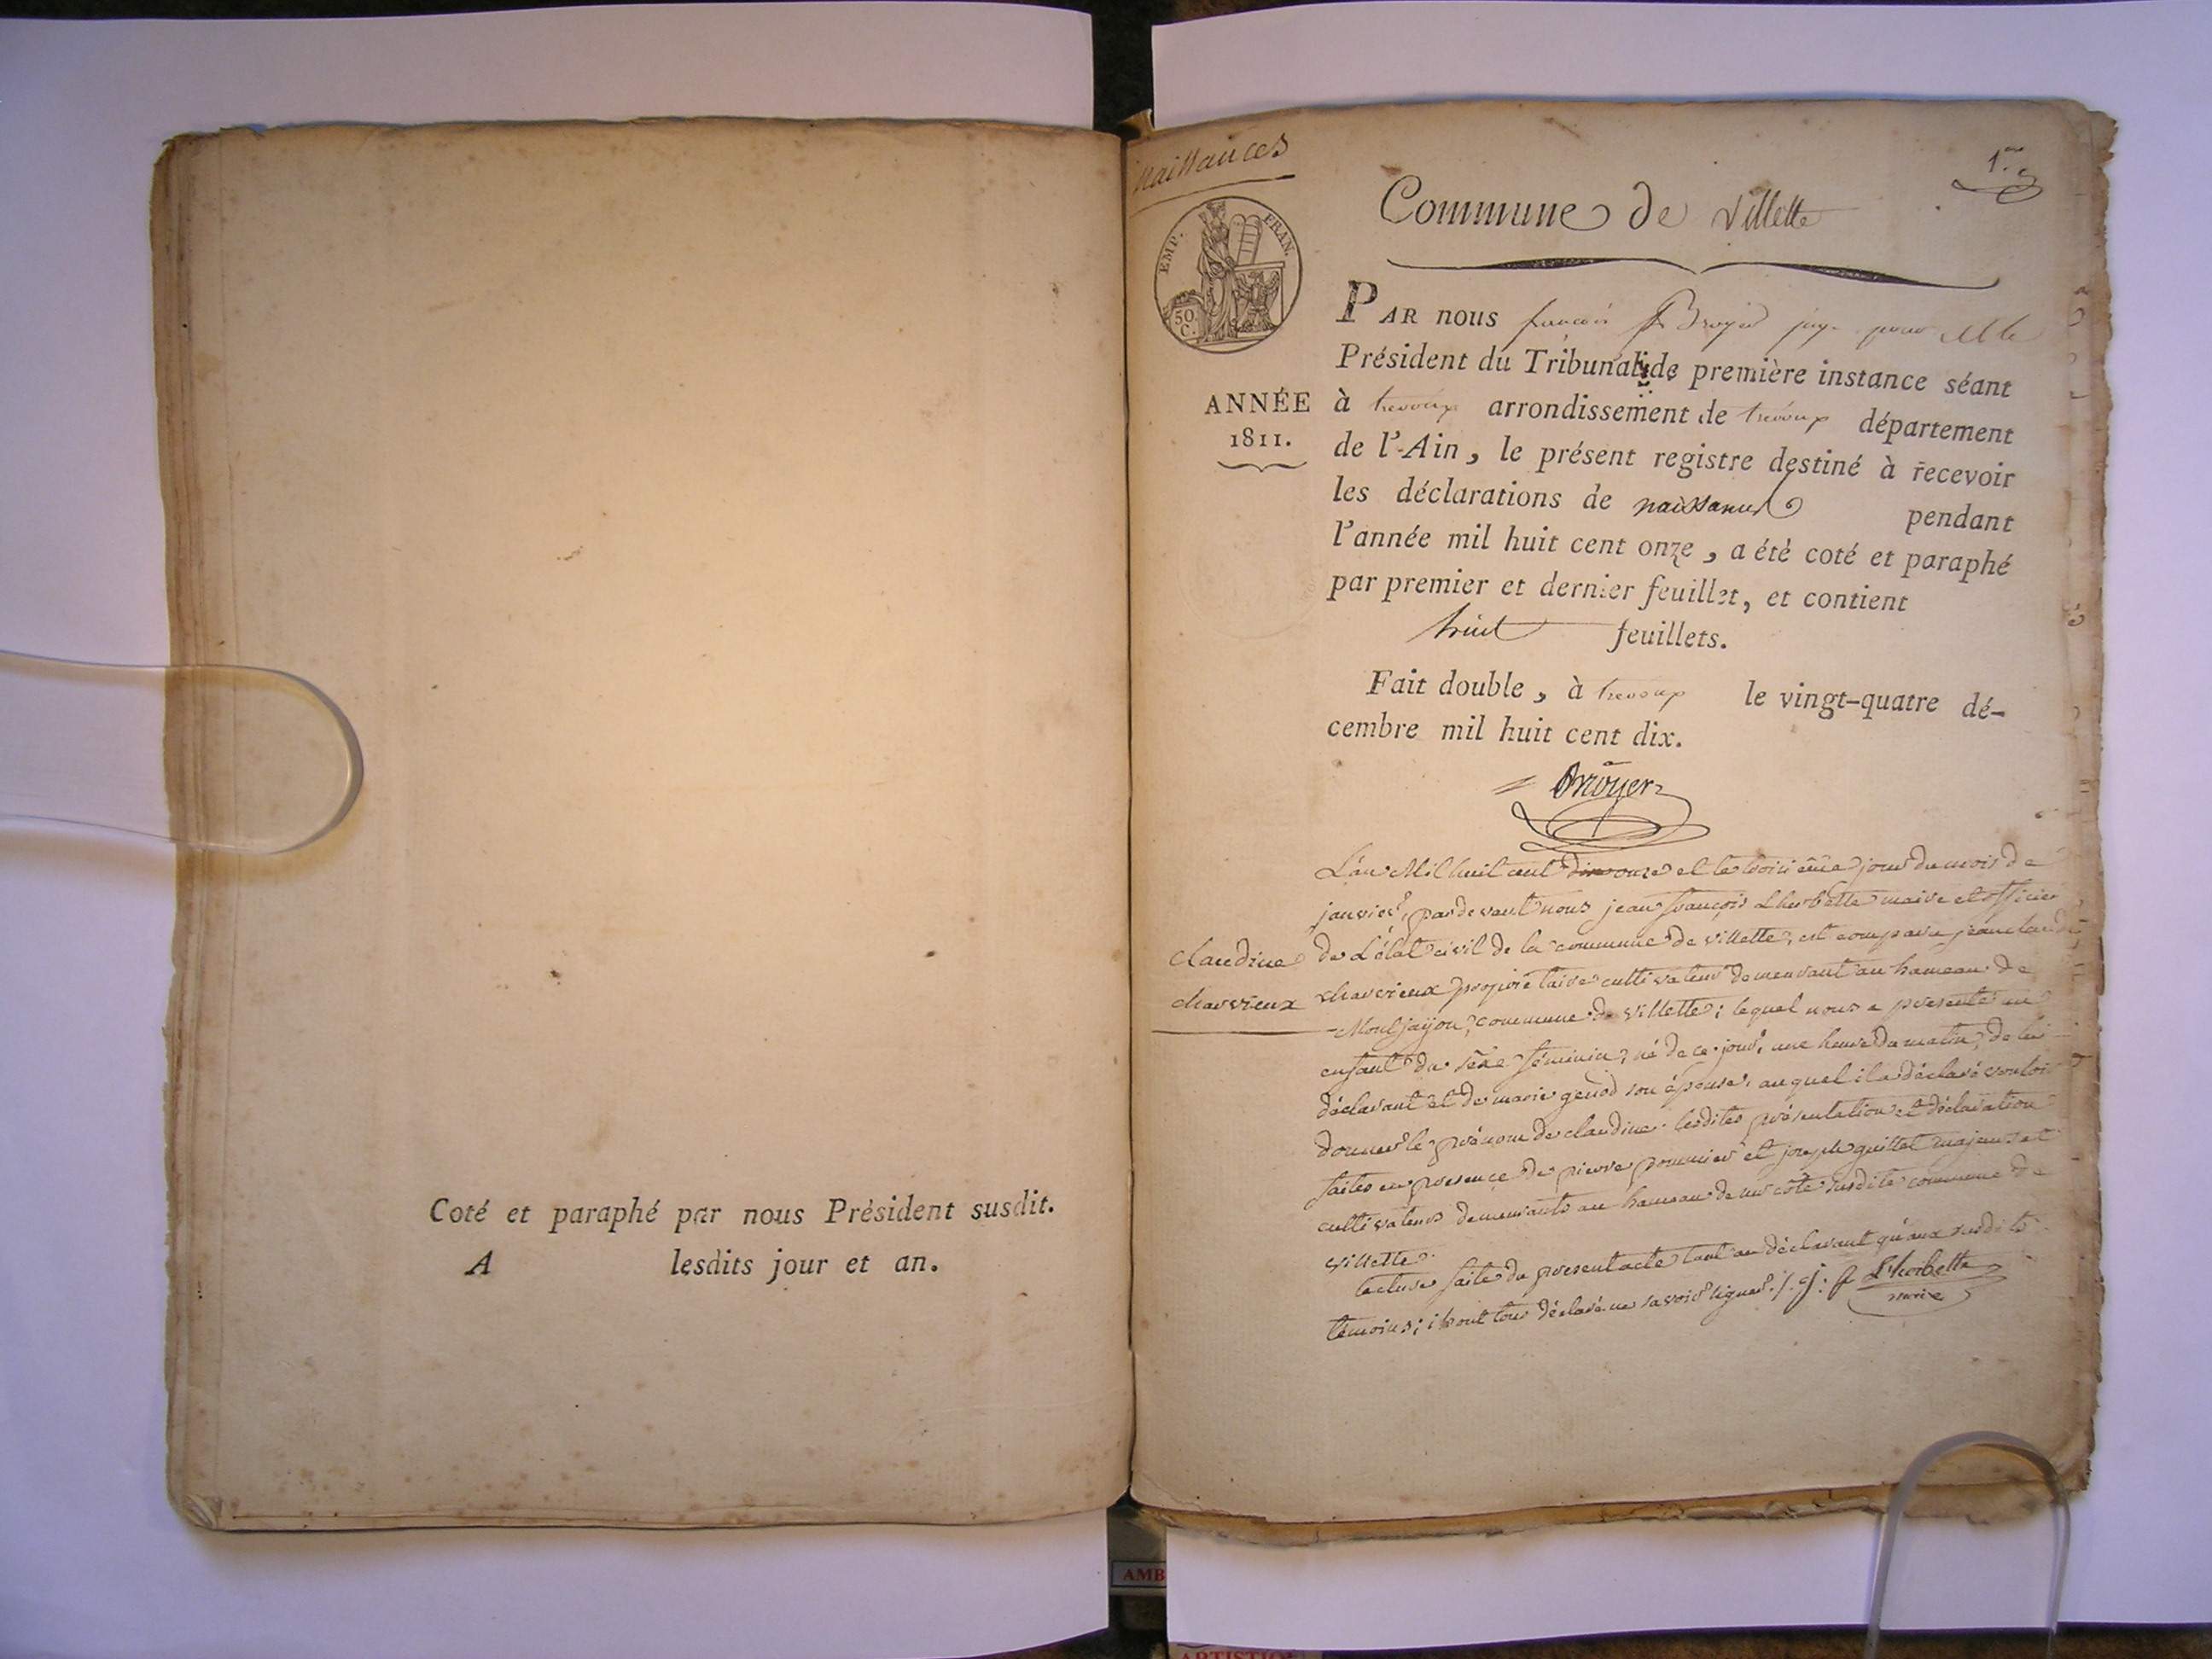 Coté et paraphé par nous Président susdit.
A lesdits jour et an.
naissances
1er
EMP. FRAN.
50. C.
Commune de villette
ANNÉE
1811.
PAR nous françois Broyer juge pour M. le
Président du Tribunal de première instance séant
à trevoux arrondissement de trévoux département
de l'Ain, le présent registre destiné à recevoir
les déclarations de naissances pendant
l'année mil huit cent onze, a été coté et paraphé
par premier et dernier feuillet, et contient
huit feuillets.
Fait double, à trevoux le vingt-quatre dé-
cembre mil huit cent dix.
Broyer
claudine
charvieux
L'an Mil huit cent onze et le troisième jour du mois de
janvier, pardevant nous jean françois Lherbette maire et officier
de L'état civil de la commune de villette, est comparu jean claude
charvieux propriétaire cultivateur demeurant au hameau de
Montjayon, commune de villette; lequel nous a presenté un
enfant du sexe féminin, né de ce jour, une heure du matin, de lui
déclarant et de marie genod son épouse, auquel il a déclaré vouloir
donner le prénom de claudine. lesdites présentation et déclaration
faites en presence de pierre pommier et joseph guillet majeurs et
cultivateurs demeurants au hameau de cote susdite commune de
villette.
lecture faite du present acte tant au déclarant qu'aux susdits
témoins; ils ont tous déclaré ne savoir signer ./. j: f Lherbette
maire
AMB
ARTISTIQ